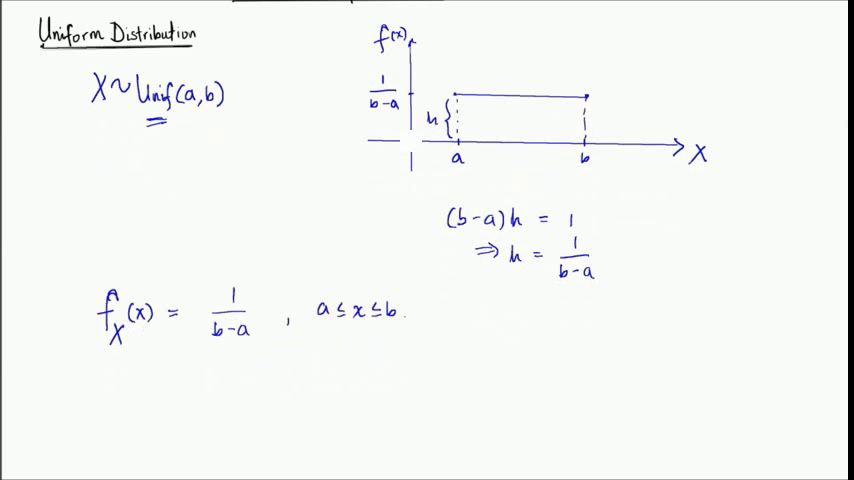 Uniform Distribution
X ~ Unif(a,b)
f(x)
1/(b-a)
h {
a b X
(b-a)h = 1
⇒ h = 1/(b-a)
f_X(x) = 1/(b-a) , a ≤ x ≤ b.